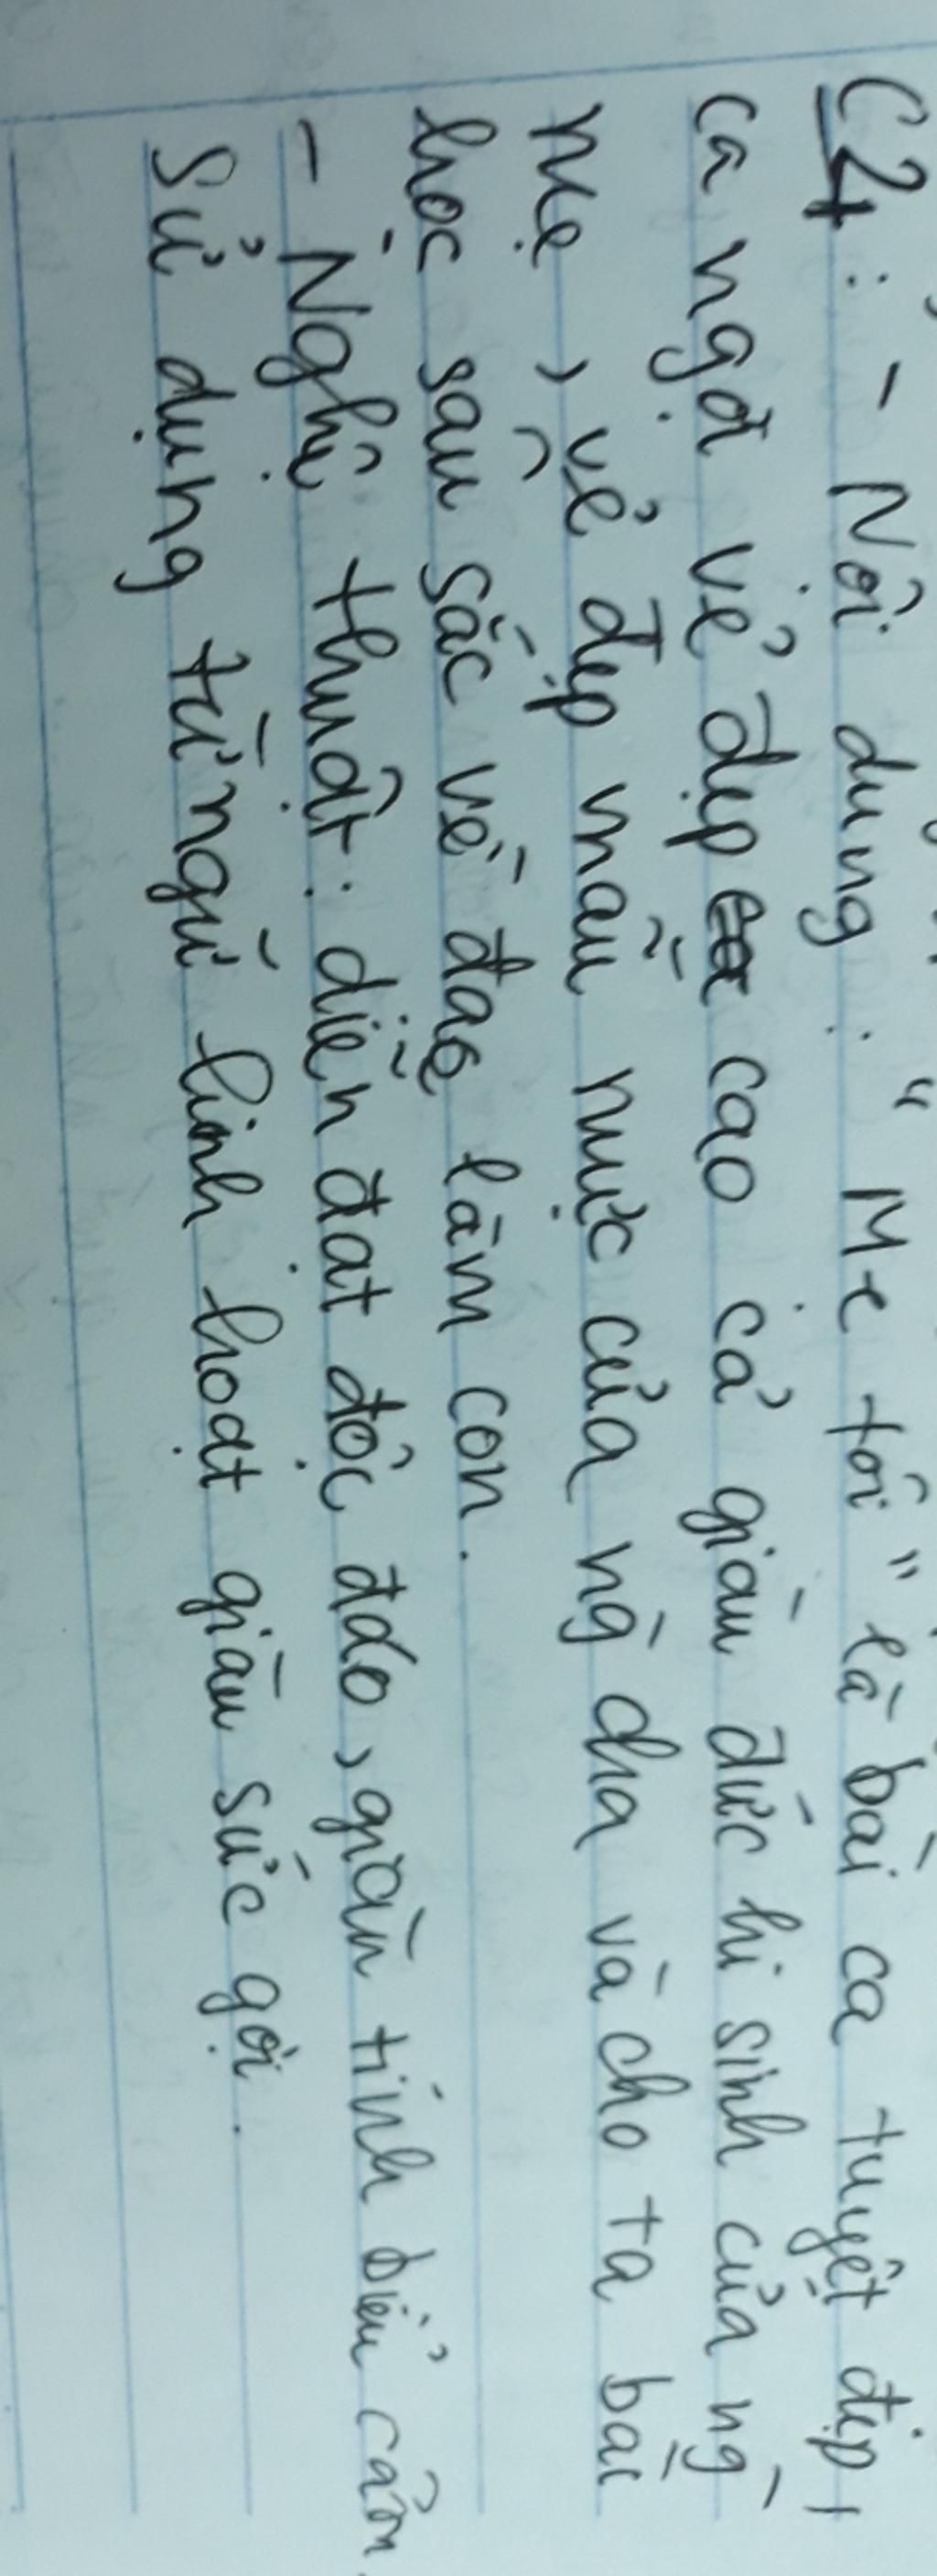 C2: - Nội dung: "Mẹ tôi" là bài ca tuyệt đẹp,
ca ngợi vẻ đẹp cao cả giàu đức hi sinh của ng̀
mẹ, vẻ đẹp mẫu mực của ng̀ cha và cho ta bài
học sâu sắc về đạo làm con.
- Nghệ thuật: diễn đạt độc đáo, giàu tính biểu cảm
Sử dụng từ ngữ linh hoạt giàu sức gợi.